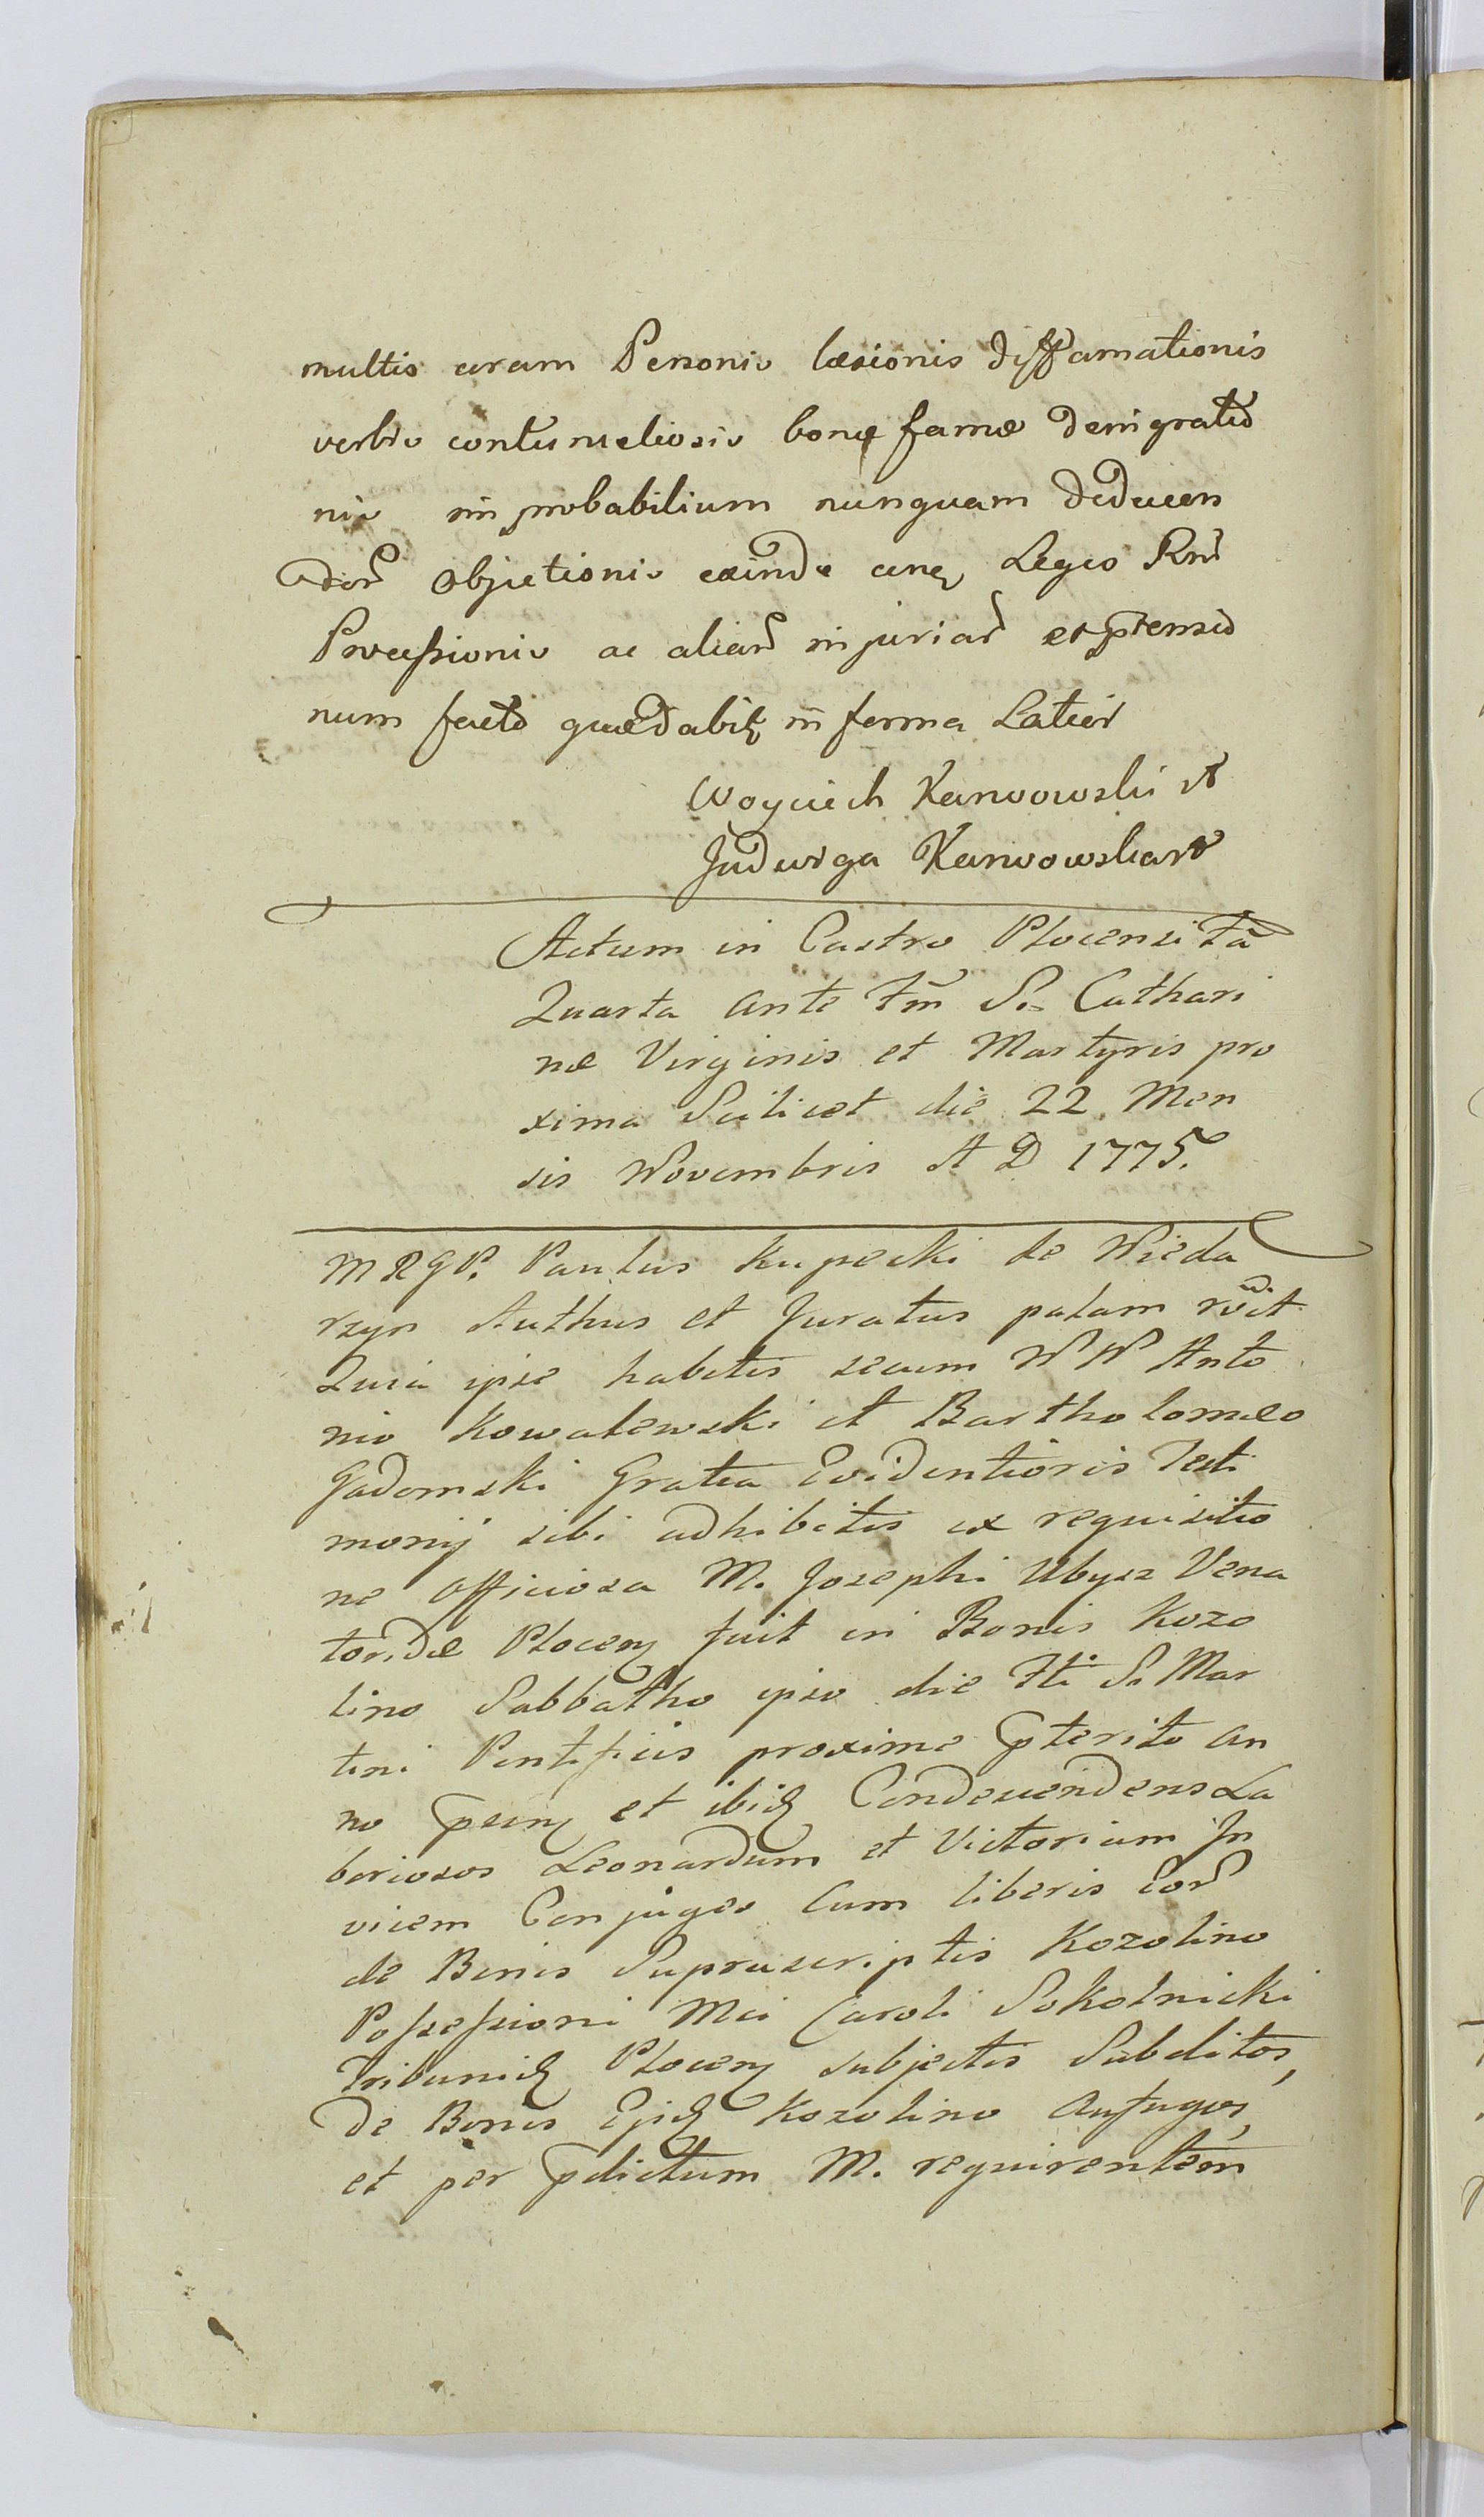 multis coram Personis læsionis diffamationis
verbis contumeliosis bonæ famæ denigratio
nis improbabilium nunquam deducen
dor̃ objectionis exinde Leges Rni
Processionis ac aliar̃ injuriar̃ et prensio
num facto quædabilꝫ in forma Latiori
Woyciech Karwowski
Jadwiga Karwowska
Actum in Castro Plocensi F̃a
Quarta ante Fm̃ S. Cathari
næ Virginis et Martyris pro
xima Scilicet die 22 Men
sis Novembris A D 1775.
M R G P. Paulus Kupecki de Nieda
rzyn Authus et Juratus palam rõvit
Quia ipse habitis secum N N Anto
nio Kowalewski et Bartholomeo
Gadomski Gratia Evidentioris Testi
monij sibi adhibitis ex requisitio
ne Officiosa M. Josephi Ubysz Vena
toridæ Plocen fuit in Bonis Kozo
lino Sabbatho ipso die Fti S. Mar
tini Pontificis proxime pterito an
no psen et ibidꝫ Condescendens La
boriosos Leonardum et Victoriam In
vicem Conjuges Cum liberis Eor̃
de Bonis Suprascriptis Kozolino
Possessioni Mci Caroli Sokolnicki
Tribunidꝫ Plocen subjectis Subditos,
de Bonis Ejsdꝫ Kozolino Aufugos,
et per pdictum M. requirentem